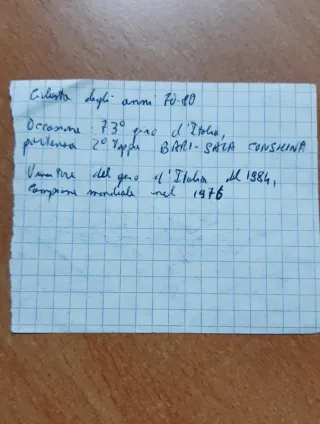 Ciclista degli anni 70-80
Occasione: 73° giro d'Italia,
partenza 2° tappa BARI-SALA CONSILINA
Vincitore del giro d'Italia del 1984,
campione mondiale nel 1976